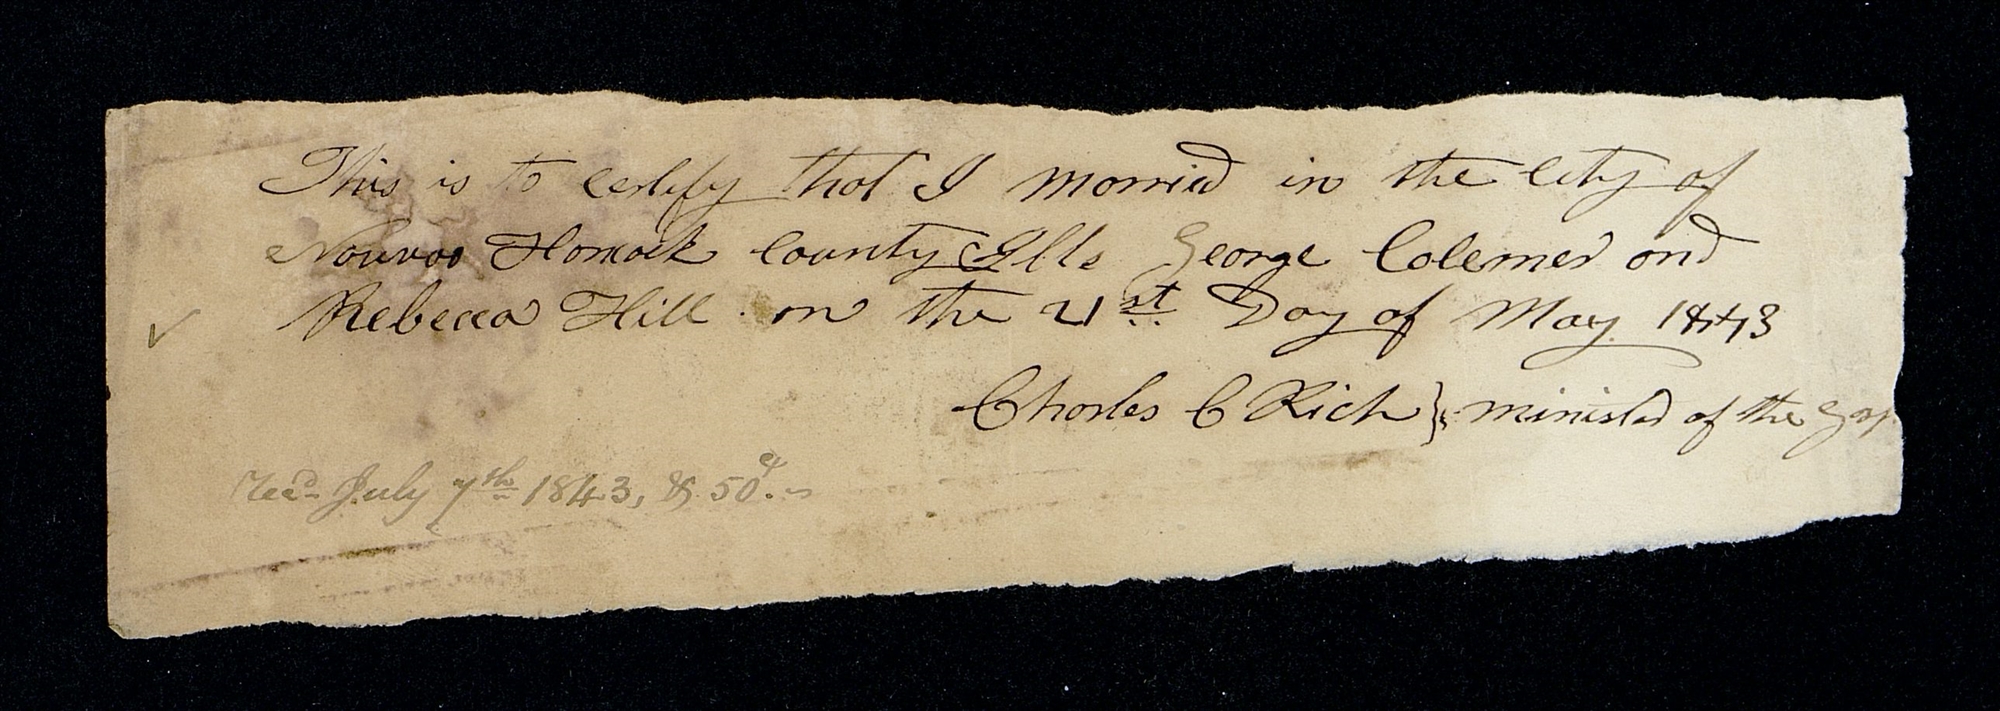 This is to certify that I married in the City of
Nauvoo Hancock County Ills George Colemer and
Rebecca Hill on the 21st Day of May 1843
Charles C Rich } minister of the Gosp
Recd July 7th 1843, & 50c.